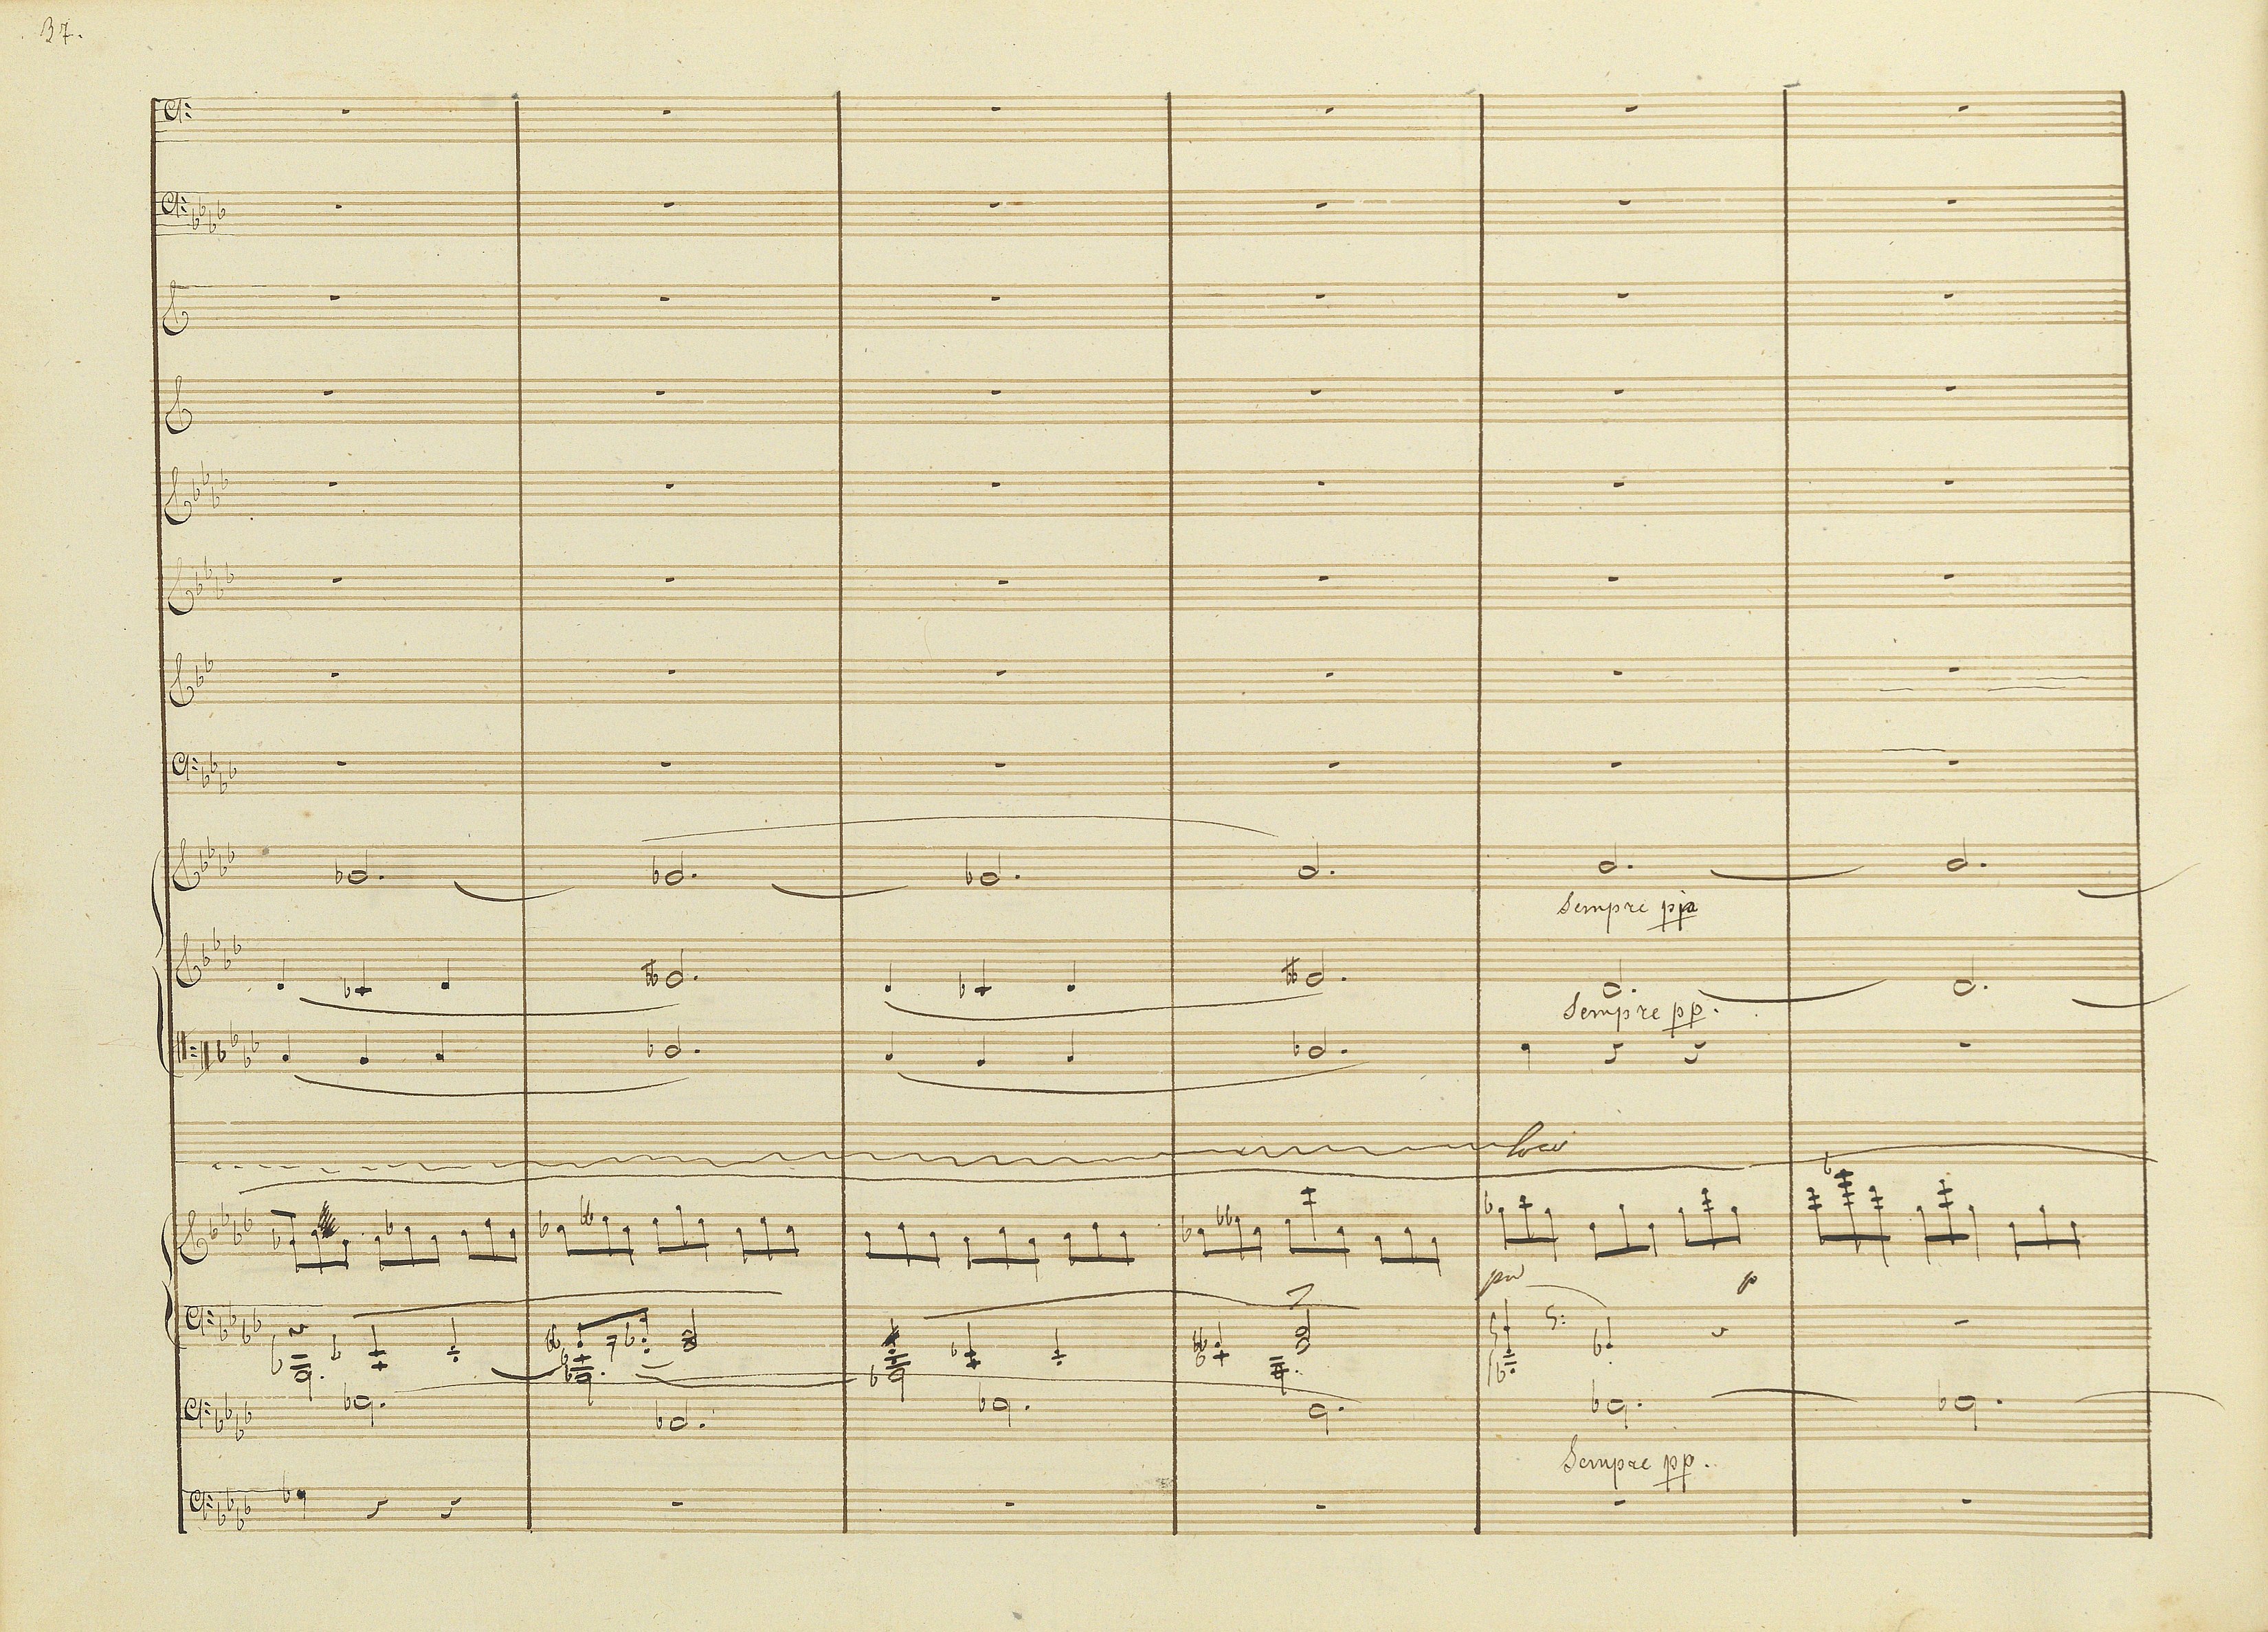 37.
Sempre pp
Sempre pp.
loco
p
Sempre pp.